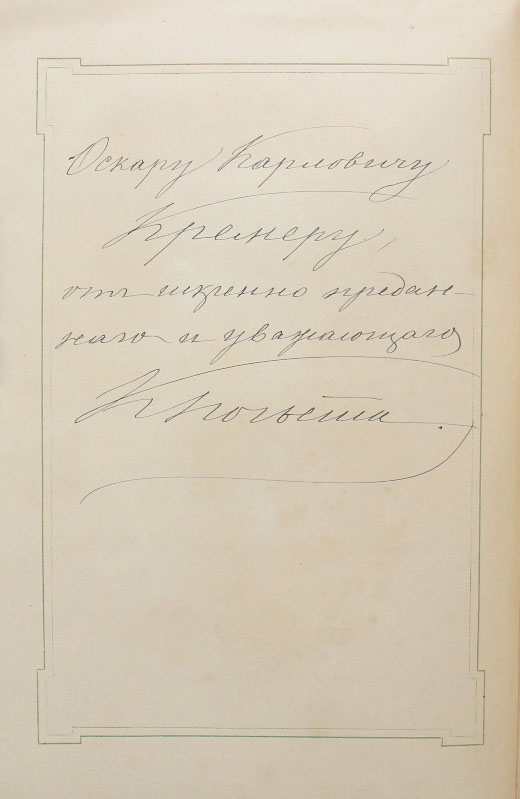 Оскару Карловичу
Кремеру,
отъ искренно предан-
наго и уважающаго